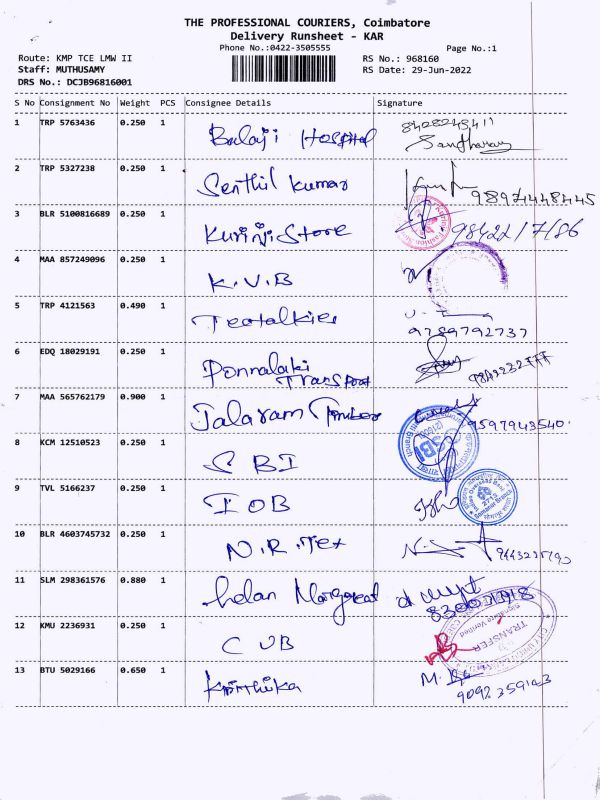 THE PROFESSIONAL COURIERS, Coimbatore
Delivery Runsheet - KAR
Phone No.:0422-3505555
Page No.:1
Route: KMP TCE LMW II
RS No.: 968160
Staff: MUTHUSAMY
RS Date: 29-Jun-2022
DRS No.: DCJB96816001
S No Consignment No Weight PCS Consignee Details Signature
1 TRP 5763436 0.250 1 Balaji Hospital
2 TRP 5327238 0.250 1 Senthil Kumar
3 BLR 5100816689 0.250 1 Kurinji Store
4 MAA 857249096 0.250 1 K.V.B
5 TRP 4121563 0.490 1
9789792737
6 EDQ 18029191 0.250 1 Ponnalaki
Transport
7 MAA 565762179 0.900 1 Jalaram 9597943540
8 KCM 12510523 0.250 1 SBI
9 TVL 5166237 0.250 1 IOB
10 BLR 4603745732 0.250 1 N.R.Tex
11 SLM 298361576 0.880 1 helan
12 KMU 2236931 0.250 1 CUB
TRANSFER
Signature Verified
13 BTU 5029166 0.650 1 Krithika M.